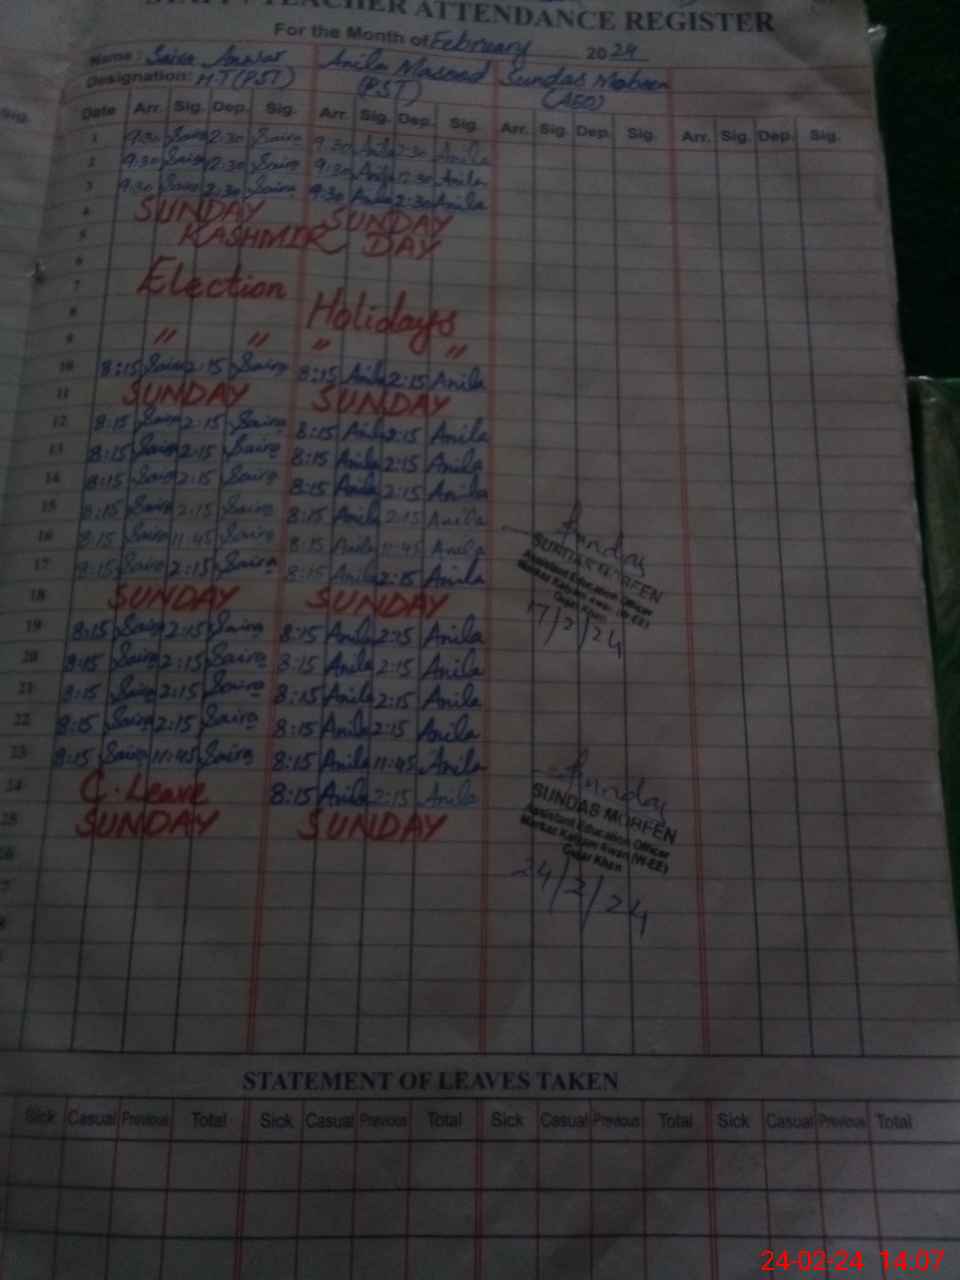 STAFF / TEACHER ATTENDANCE REGISTER
For the Month of February 2024
Name: Saira Anila Masood Sundas Mobeen
Designation: HT (PST) (PST) (AEO)
Sig.
Date Arr. Sig. Dep. Sig. Arr. Sig. Dep. Sig. Arr. Sig. Dep. Sig. Arr. Sig. Dep. Sig.
1 9:30 Saira 2:30 Saira 9:30 Anila 2:30 Anila
2 9:30 Saira 2:30 Saira 9:30 Anila 12:30 Anila
3 9:30 Saira 2:30 Saira 9:30 Anila 2:30 Anila
4 SUNDAY SUNDAY
5 KASHMIR DAY
6
7 Election
8 Holidays
9 " " " "
10 8:15 Saira 2:15 Saira 8:15 Anila 2:15 Anila
11 SUNDAY SUNDAY
12 8:15 Saira 2:15 Saira 8:15 Anila 2:15 Anila
13 8:15 Saira 2:15 Saira 8:15 Anila 2:15 Anila
14 8:15 Saira 2:15 Saira 8:15 Anila 2:15 Anila
15 8:15 Saira 2:15 Saira 8:15 Anila 2:15 Anila
16 8:15 Saira 11:45 Saira 8:15 Anila 11:45 Anila
17 8:15 Saira 2:15 Saira 8:15 Anila 2:15 Anila
Sunday
SUNDAS MOBEEN
Assistant Education Officer
Markaz Kalyam Awan (W-EE)
Gujar Khan
17/2/24
18 SUNDAY SUNDAY
19 8:15 Saira 2:15 Saira 8:15 Anila 2:15 Anila
20 8:15 Saira 2:15 Saira 8:15 Anila 2:15 Anila
21 8:15 Saira 2:15 Saira 8:15 Anila 2:15 Anila
22 8:15 Saira 2:15 Saira 8:15 Anila 2:15 Anila
23 8:15 Saira 11:45 Saira 8:15 Anila 11:45 Anila
24 C. Leave 8:15 Anila 2:15 Anila
25 SUNDAY SUNDAY
SUNDAS MOBEEN
Assistant Education Officer
Markaz Kalyam Awan (W-EE)
Gujar Khan
24/2/24
26
STATEMENT OF LEAVES TAKEN
Sick Casual Previous Total Sick Casual Previous Total Sick Casual Previous Total Sick Casual Previous Total
24-02-24 14:07